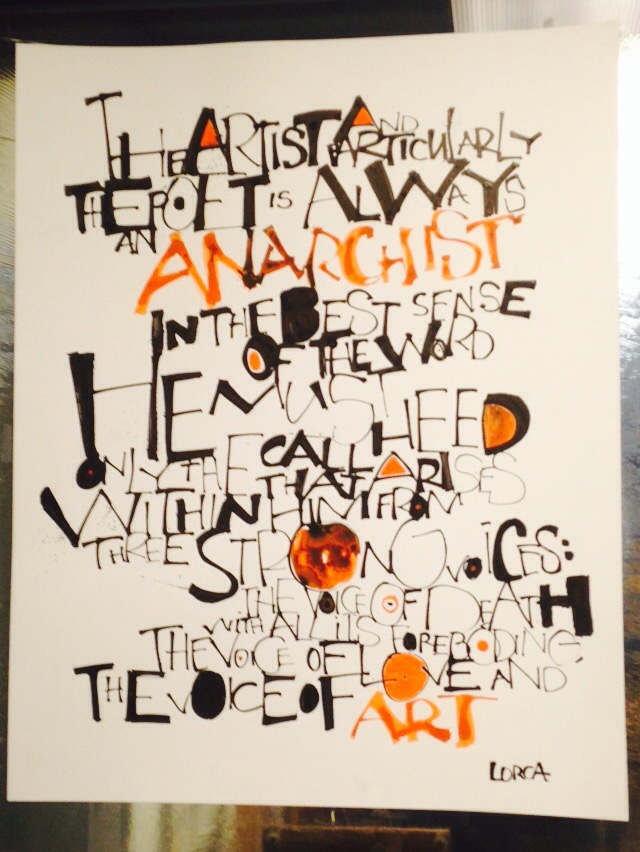 THE ARTIST AND PARTICULARLY
THE POET IS ALWAYS
AN ANARCHIST
IN THE BEST SENSE
OF THE WORD
HE MUST HEED
ONLY THE CALL THAT ARISES
WITHIN HIM FROM
THREE STRONG VOICES:
THE VOICE OF DEATH
WITH ALL ITS FOREBODING,
THE VOICE OF LOVE AND
THE VOICE OF ART
LORCA